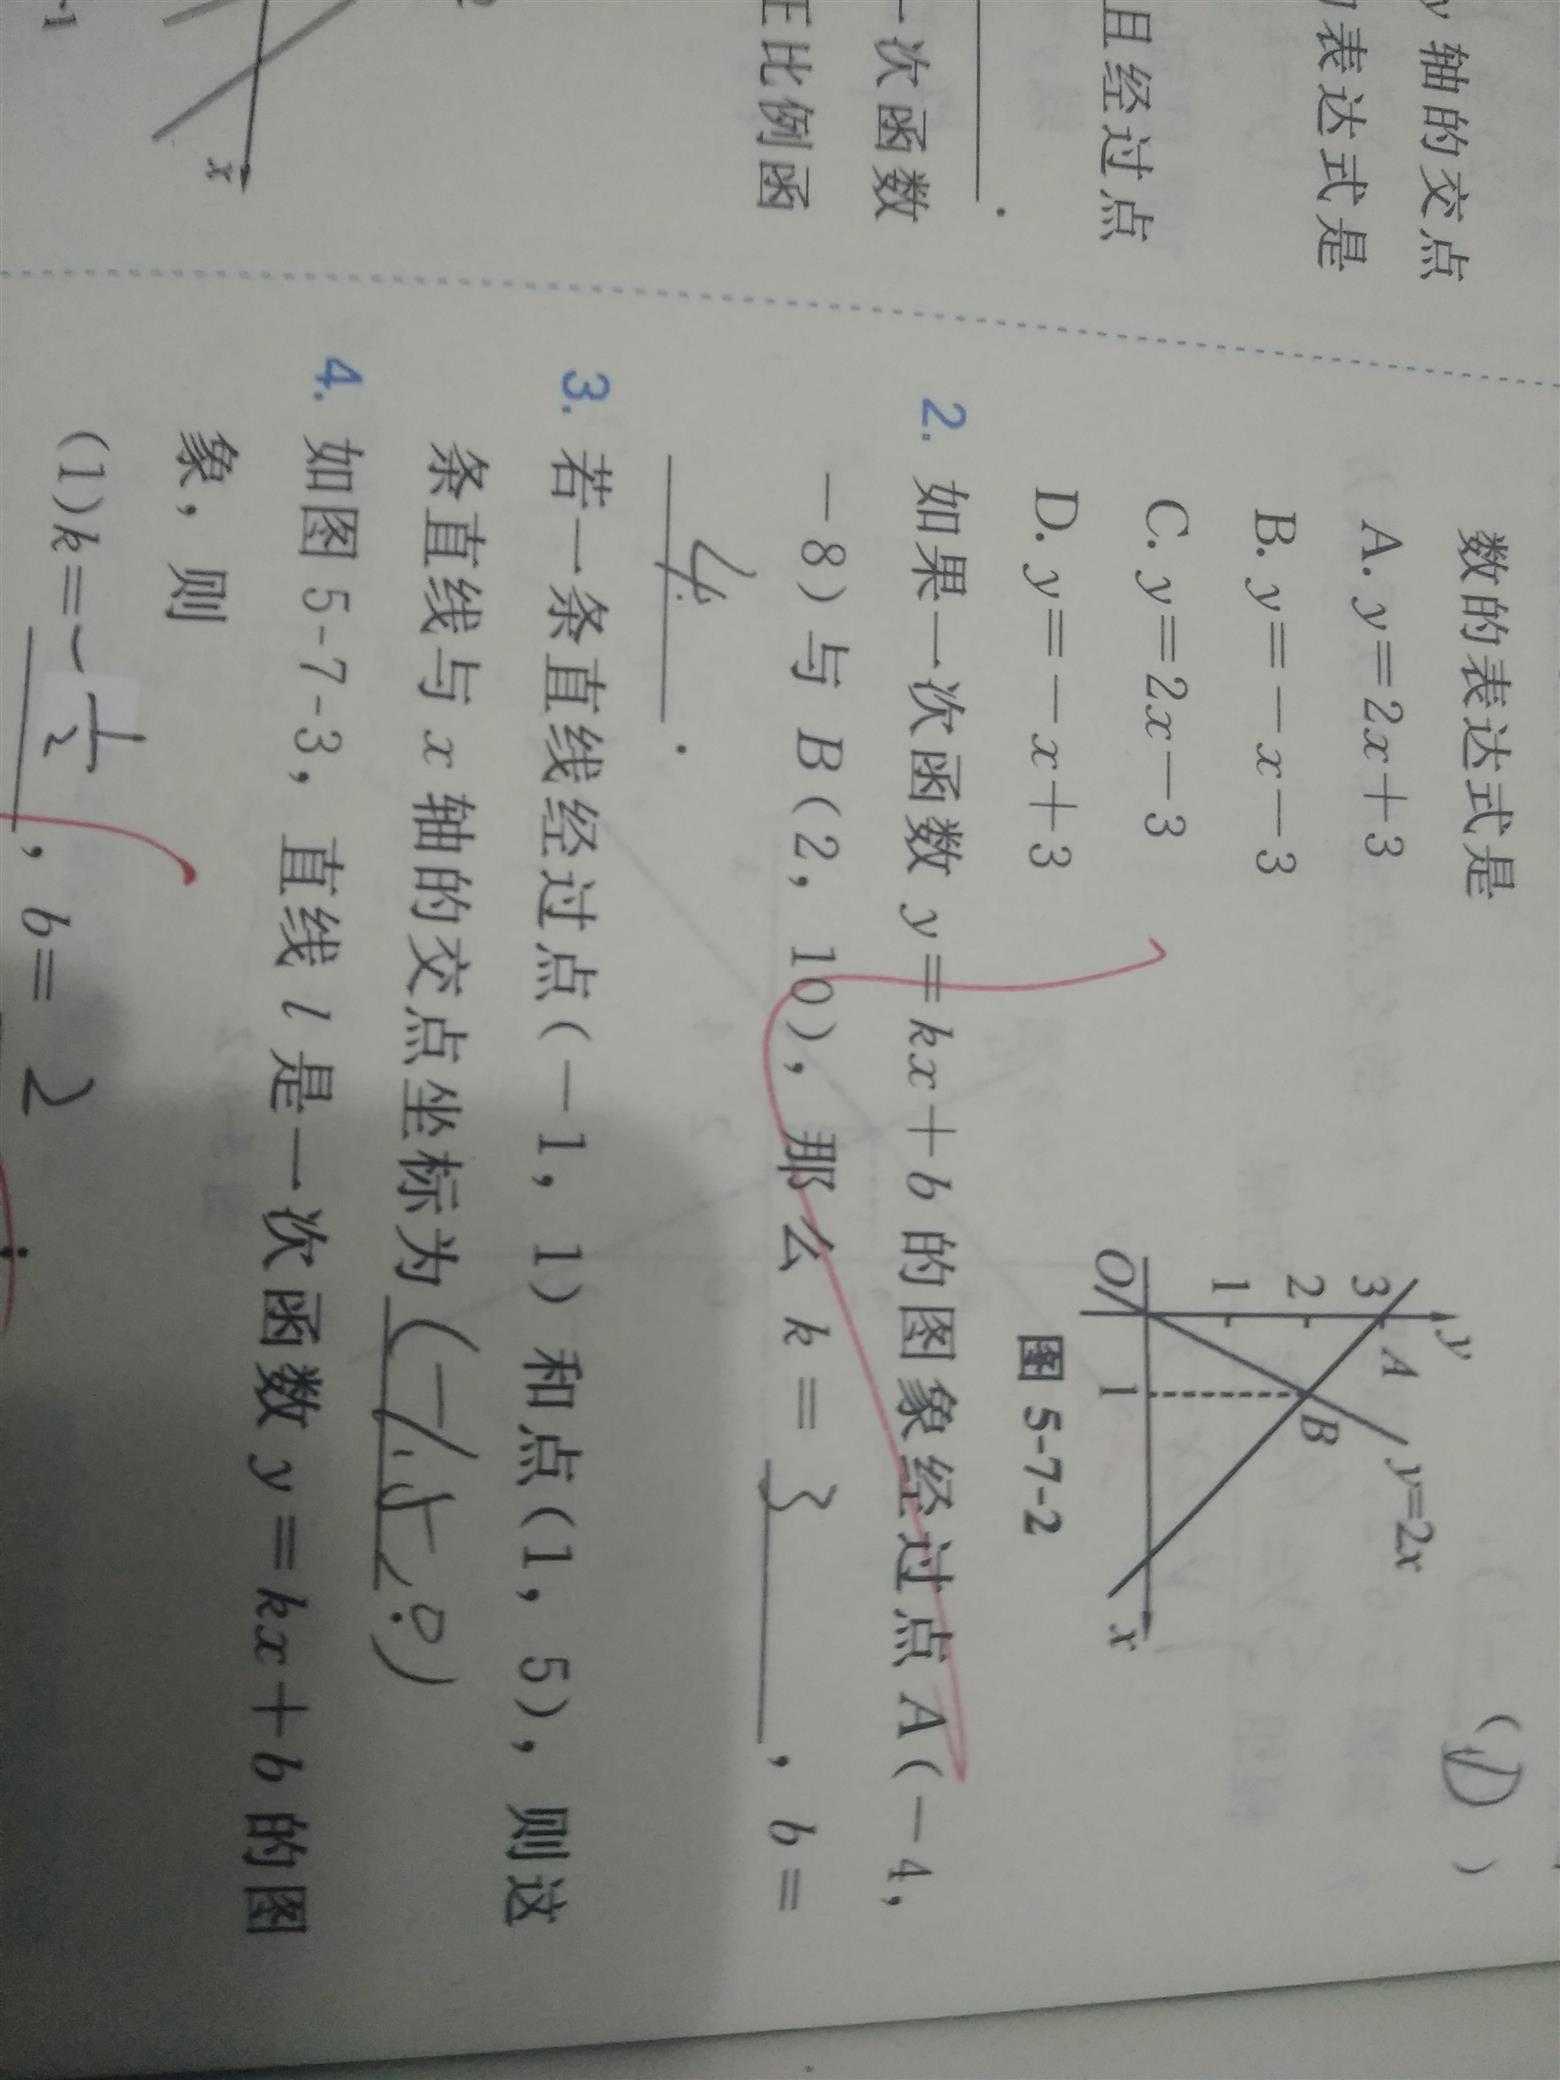 y 轴的交点
表达式是
且经过点
.
一次函数
正比例函
x
-1
数的表达式是 (D)
A. y=2x+3
B. y=-x-3
C. y=2x-3
D. y=-x+3
y
3
A
2
B
y=2x
1
O
1
x
图 5-7-2
2. 如果一次函数 y=kx+b 的图象经过点 A(-4,
-8)与 B(2, 10), 那么 k= 3 , b=
4 .
3. 若一条直线经过点(-1, 1)和点(1, 5), 则这
条直线与 x 轴的交点坐标为 (-1.5, 0)
4. 如图 5-7-3, 直线 l 是一次函数 y=kx+b 的图
象, 则
(1)k=-1/2, b= 2